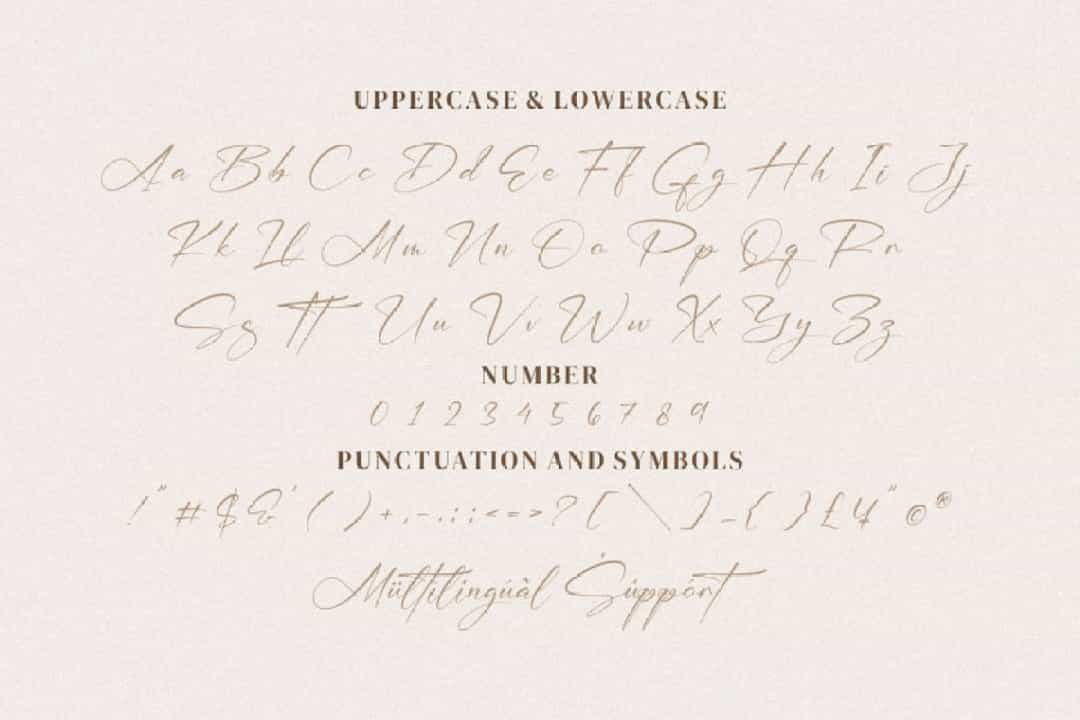 UPPERCASE & LOWERCASE
Aa Bb Cc Dd Ee Ff Gg Hh Ii Jj
Kk Ll Mm Nn Oo Pp Qq Rr
Ss Tt Uu Vv Ww Xx Yy Zz
NUMBER
0 1 2 3 4 5 6 7 8 9
PUNCTUATION AND SYMBOLS
! " # $ & ' ( ) + , - . : ; < = > ? [ \ ] _ { } £ ¥ " © ®
Mültilingúàl Śùppórt